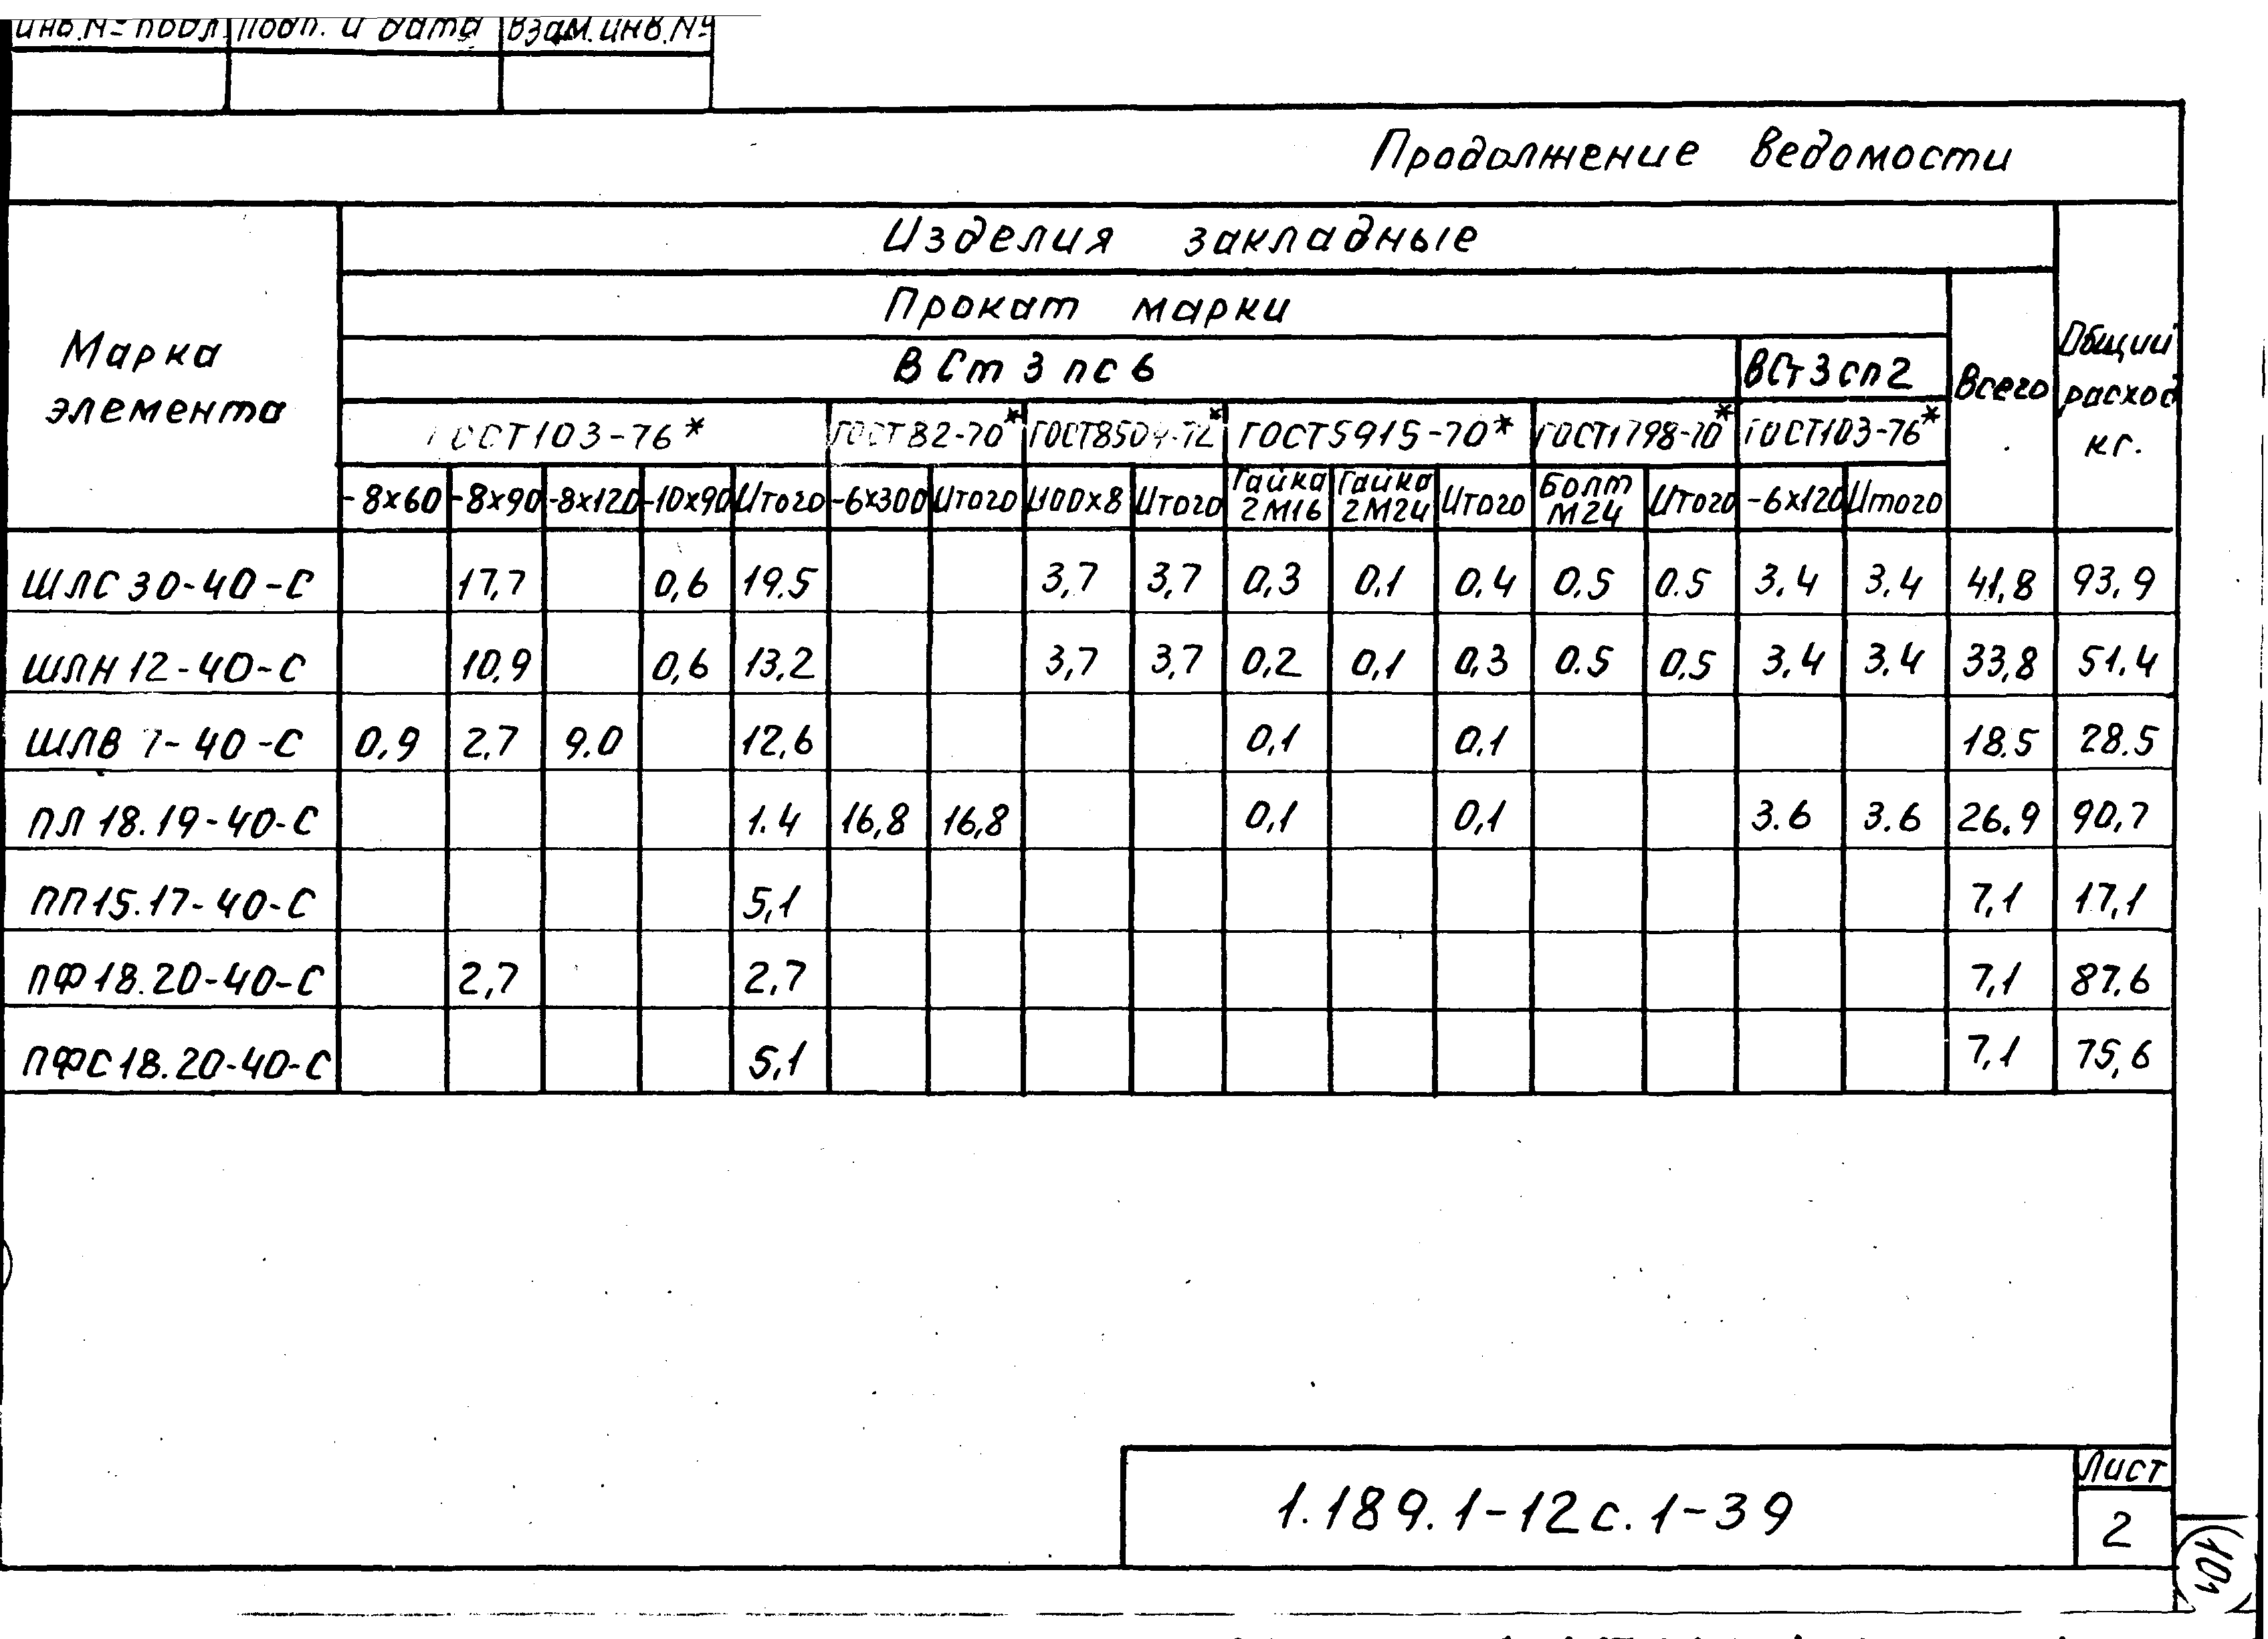 Инв.№ подл. Подп. и дата Взам.инв.№
Продолжение ведомости
Марка элемента
Изделия закладные
Прокат марки
Всего
Общий расход кг.
ВСт3пс6 ВСт3сп2
ГОСТ103-76* ГОСТ82-70* ГОСТ8509-72* ГОСТ5915-70* ГОСТ1798-70* ГОСТ103-76*
-8х60 -8х90 -8х120 -10х90 Итого -6х300 Итого Итого Гайка 2М16 Гайка 2М24 Итого Болт М24 Итого -6х120 Итого
ШЛС 30-40-С 17,7 0,6 19.5 3,7 3,7 0,3 0,1 0,4 0.5 0.5 3.4 3.4 41,8 93,9
ШЛН 12-40-С 10,9 0,6 13,2 3,7 3,7 0,2 0,1 0,3 0.5 0,5 3,4 3.4 33,8 51.4
ШЛВ 7-40-С 0,9 2,7 9.0 12,6 0,1 0,1 18.5 28.5
ПЛ 18.19-40-С 1.4 16,8 16,8 0,1 0,1 3.6 3.6 26.9 90,7
ПП15.17-40-С 5,1 7,1 17,1
ПФ18.20-40-С 2,7 2,7 7,1 87.6
ПФС18.20-40-С 5,1 7,1 75,6
1.189.1-12с.1-39
Лист
2
101